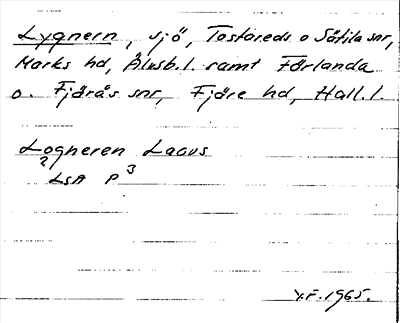 Lygnern, sjö, Tostareds o Sätila snr,
Marks hd, Älvsb.l. samt Förlanda
o. Fjärås snr, Fjäre hd, Hall.l.
Logneren Lacus
?
LSA P3
Y.F. 1965.